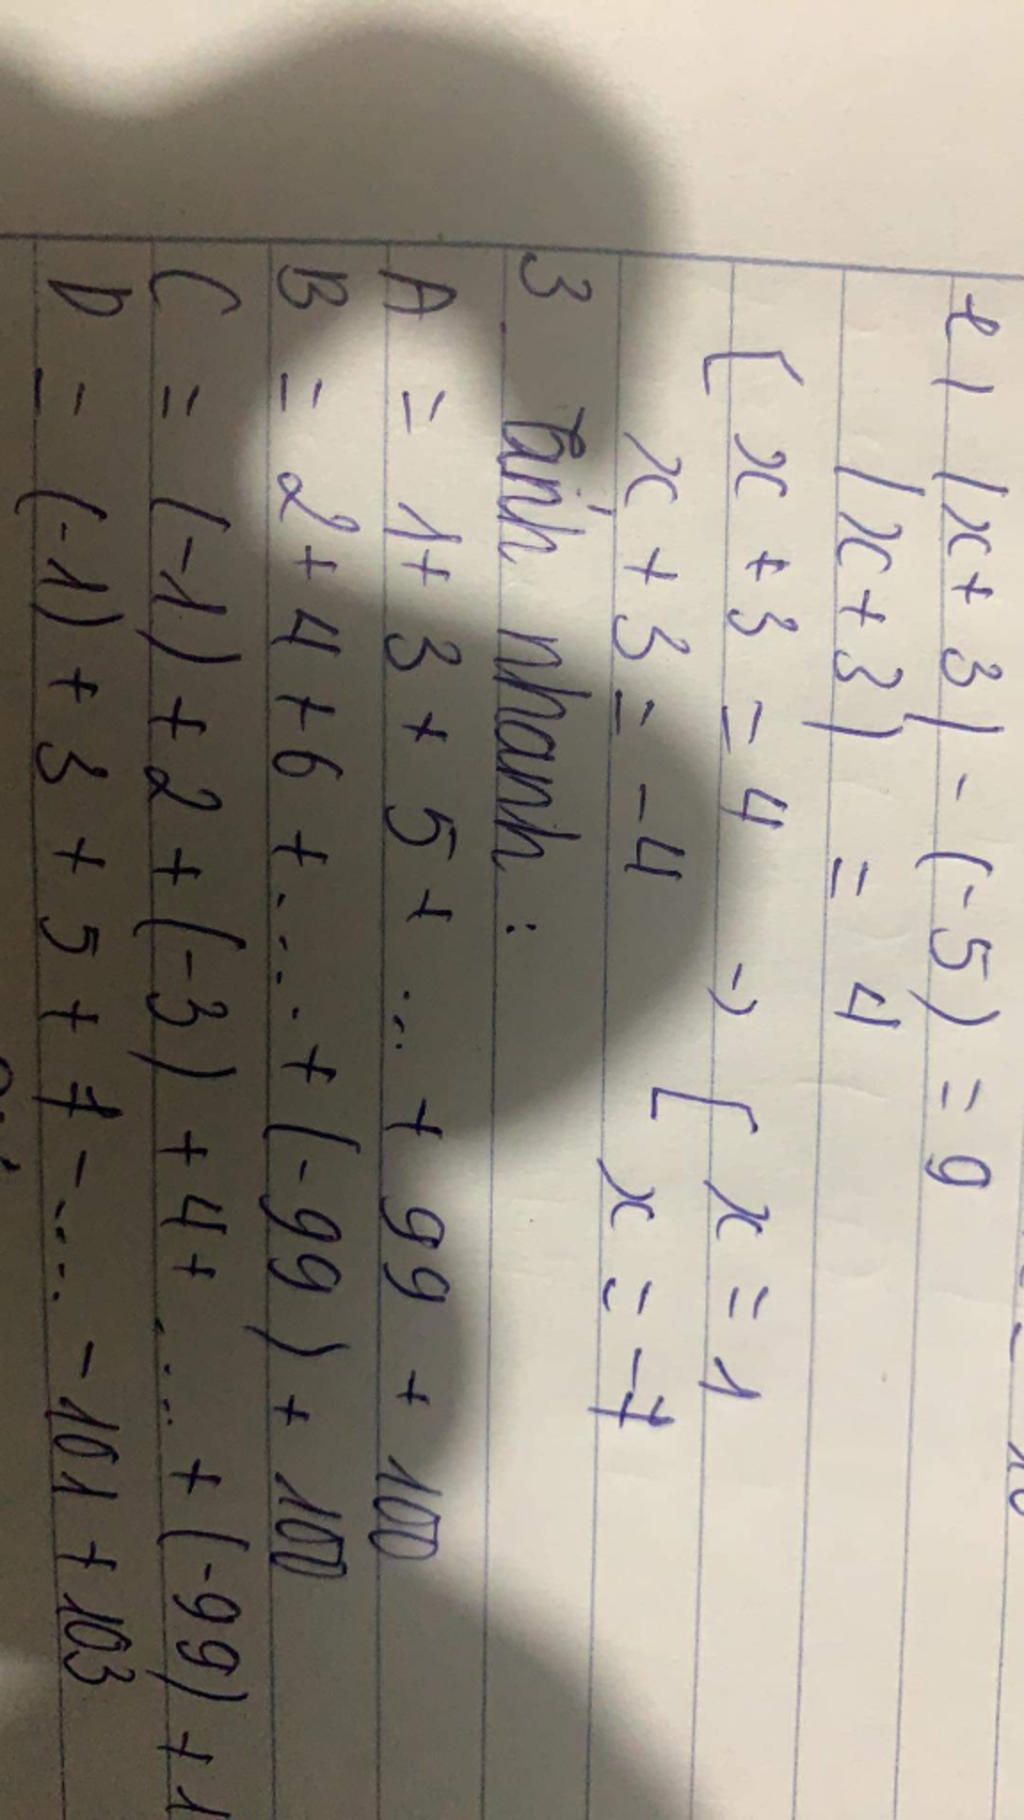 e) |x + 3| - (-5) = 9
|x + 3| = 4
[ x + 3 = 4 → [ x = 1
x + 3 = -4 x = -7
3 tính nhanh:
A = 1 + 3 + 5 + ... + 99 + 100
B = 2 + 4 + 6 + .... + (-99) + 100
C = (-1) + 2 + (-3) + 4 + .... + (-99) + 1
D = (-1) + 3 + 5 + 7 - .... - 101 + 103